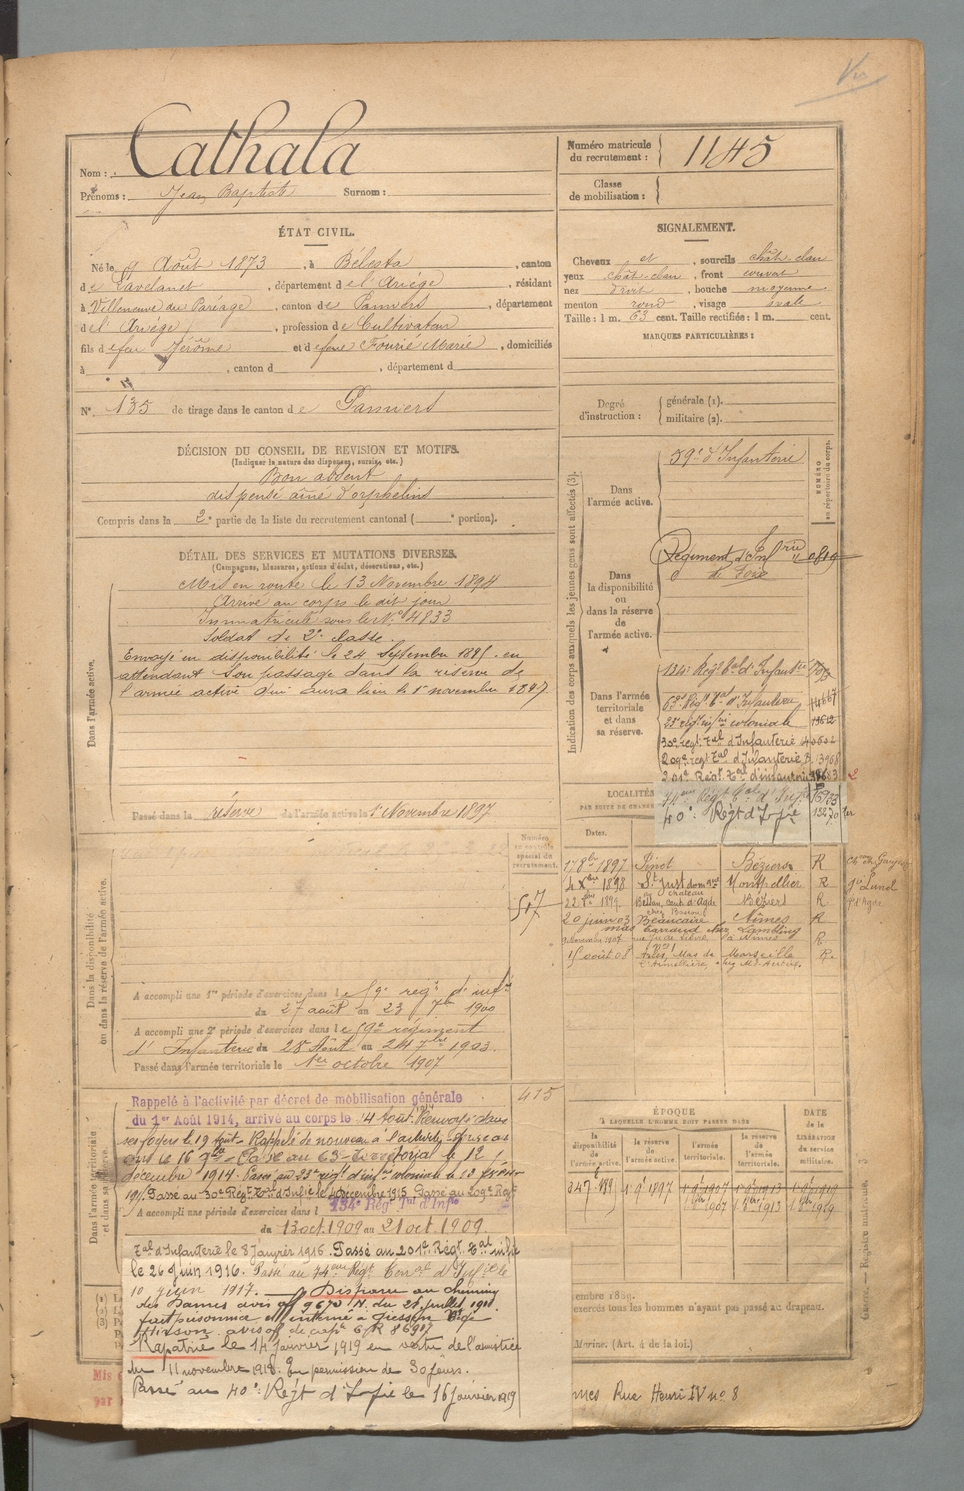 Nom : Cathala
Prénoms : Jean Baptiste Surnom :
Numéro matricule du recrutement : 1145
Classe de mobilisation :
ÉTAT CIVIL.
Né le 9 Août 1873, à Bélesta, canton
de Lavelanet, département de l'Ariège, résidant
à Villeneuve du Paréage, canton de Pamiers, département
de l'Ariège, profession de Cultivateur
fils de feu Jérôme et de feue Fourié Marie, domiciliés
à , canton d , département d
N° 135 de tirage dans le canton de Pamiers
SIGNALEMENT.
Cheveux et, sourcils chât. clair
yeux chât. clair, front couvert
nez droit, bouche moyenne
menton rond, visage ovale
Taille : 1 m. 63 cent. Taille rectifiée : 1 m. cent.
MARQUES PARTICULIÈRES :
Degré d'instruction : générale (2).
militaire (2).
DÉCISION DU CONSEIL DE REVISION ET MOTIFS.
(Indiquer la nature des dispenses, sursis, etc.)
Bon absent
dispensé aîné d'orphelins
Compris dans la 2e partie de la liste du recrutement cantonal ( e portion).
DÉTAIL DES SERVICES ET MUTATIONS DIVERSES.
(Campagnes, blessures, actions d'éclat, décorations, etc.)
Dans l'armée active.
Mis en route le 13 Novembre 1894
Arrivé au corps le dit jour
Immatriculé sous le N° 4833
Soldat de 2e classe.
Envoyé en disponibilité le 24 Septembre 1895 en
attendant son passage dans la réserve de
l'armée active qui aura lieu le 1er novembre 1897
Passé dans la réserve de l'armée active le 1er Novembre 1897
Indication des corps auxquels les jeunes gens sont affectés (3).
NUMÉRO au répertoire du corps.
Dans l'armée active.
59e d'Infanterie
Dans la disponibilité ou dans la réserve de l'armée active.
Régiment d'Infrie
de Foix
Dans l'armée territoriale et dans sa réserve.
134e Régt tal d'Infanterie
63e Régt tal d'Infanterie
23e régt infrie coloniale
30e régt tal d'Infanterie
209e régt tal d'Infanterie 13968
201e Régt tal d'infanterie
74eme Régt tal d'Infrie
40e Régt d'Infie
LOCALITÉS
Dates.
17 8bre 1897 Pinet Béziers R
4 Xbre 1898 St Just Montpellier R
22 1899 Bessan, cant. d'Agde Béziers R
20 juin 03 Beaucaire Nîmes R
9 novembre 1907 à Nîmes R
15 août 08 Arles, Mas de Marseille R
Numéro au contrôle spécial du recrutement.
517
Dans la disponibilité ou dans la réserve de l'armée active.
A accompli une 1re période d'exercices dans le 59e regt d'infie
du 27 août au 23 7bre 1900
A accompli une 2e période d'exercices dans le 59e régiment
d'Infanterie du 28 Août au 24 7bre 1903
Passé dans l'armée territoriale le 1er octobre 1907
415
Dans l'armée territoriale et dans sa réserve.
Rappelé à l'activité par décret de mobilisation générale
du 1er Août 1914, arrivé au corps le 4 Août 1914 Renvoyé dans
ses foyers le 19 Août. Rappelé de nouveau à l'activité
le 16 Passé au 63e territorial le 12
décembre 1914. Passé au 23e régt d'infie coloniale le 13
1915 Passé au 30e Régt Tal d'Infie le 4 décembre 1915 Passé au 209e Régt
134e Régt Tal d'Infie
A accompli une période d'exercices dans l
du 13 oct. 1909 au 21 oct. 1909.
Tal d'Infanterie le 8 Janvier 1916. Passé au 201e Régt Tal infie
le 26 Juin 1916. Passé au 74eme Régt Terral d'Infie le
10 juin 1917. Disparu au chemin
des Dames avis off 9670 N. du 28 juillet 1918
fait prisonnier et interné à Giessen
Hirson avis off de
Rapatrié le 14 Janvier 1919 en vertu de l'amistice
du 11 novembre 1918. En permission de 30 jours.
Passé au 40e Régt d'Infie le 16 Janvier 1919
ÉPOQUE
À LAQUELLE L'HOMME DOIT PASSER DANS
la disponibilité de l'armée active.
la réserve de l'armée active.
l'armée territoriale.
la réserve de l'armée territoriale.
DATE de la LIBÉRATION du service militaire.
1 9bre 1897
1 9bre 1907
1 9bre 1913
1 9bre 1919
1 8bre 1907
1 8bre 1913
1 8bre 1919
exercés tous les hommes n'ayant pas passé au drapeau.
Marine. (Art. 4 de la loi.)
Rue Henri IV no 8